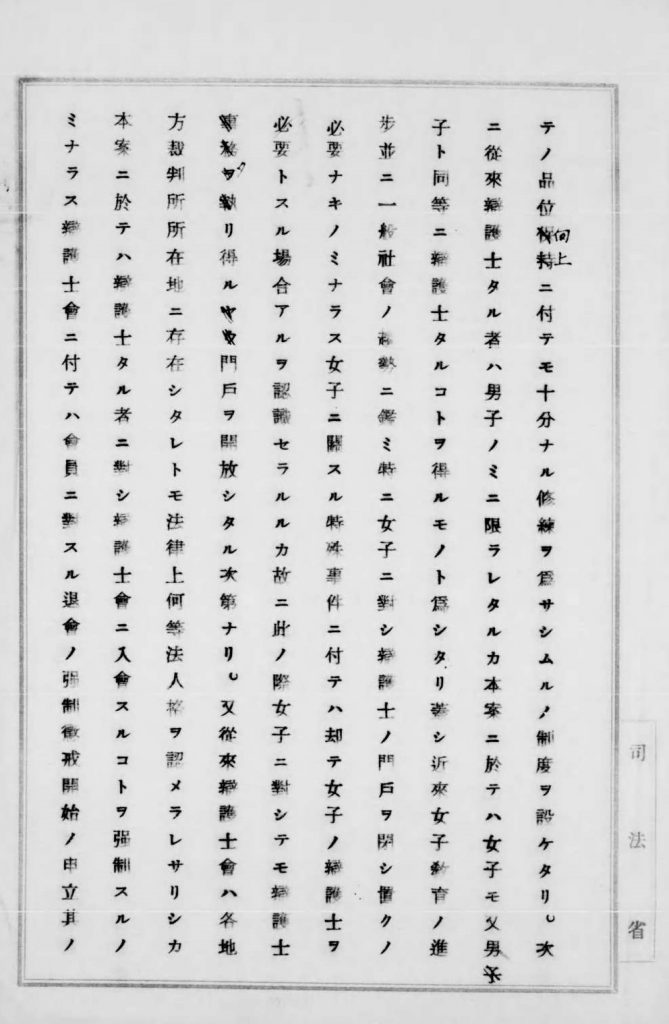 テノ品位保持ニ付テモ十分ナル修練ヲ爲サシムルノ制度ヲ設ケタリ。次
向上
ニ從來辯護士タル者ハ男子ノミニ限ラレタルカ本案ニ於テハ女子モ又男子
子ト同等ニ辯護士タルコトヲ得ルモノト爲シタリ蓋シ近來女子敎育ノ進
步並ニ一般社會ノ趨勢ニ鑑ミ特ニ女子ニ對シ辯護士ノ門戶ヲ閉シ置クノ
必要ナキノミナラス女子ニ關スル特殊事件ニ付テハ却テ女子ノ辯護士ヲ
必要トスル場合アルヲ認識セラルルカ故ニ此ノ際女子ニ對シテモ辯護士
ヲ リ得ル 門戶ヲ開放シタル次第ナリ。又從來辯護士會ハ各地
方裁判所所在地ニ存在シタレトモ法律上何等法人格ヲ認メラレサリシカ
本案ニ於テハ辯護士タル者ニ對シ辯護士會ニ入會スルコトヲ强制スルノ
ミナラス辯護士會ニ付テハ會員ニ對スル退會ノ强制懲戒開始ノ申立其ノ
司法省